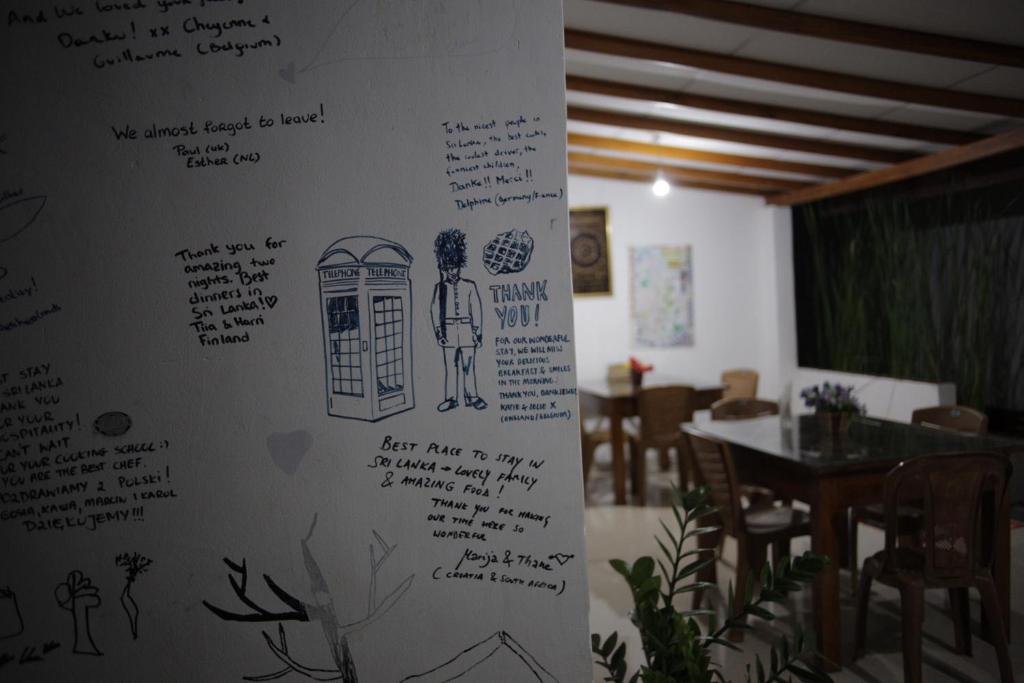 And we loved your
Danku! xx Cheyenne &
Guillaume (Belgium)
We almost forgot to leave!
Paul (UK)
Esther (NL)
To the nicest people in
Sri Lanka, the best cook,
the coolest driver, the
funniest children,
Danke!! Merci!!
Delphine (Germany/France)
Thank you for
amazing two
nights. Best
dinners in
Sri Lanka!♡
Tiia & Harri
Finland
TELEPHONE TELEPHONE
THANK
YOU!
FOR OUR WONDERFUL
STAY, WE WILL MISS
YOUR DELICIOUS
BREAKFAST & SMILES
IN THE MORNING.
THANK YOU,
KATIE & X
(ENGLAND/BELGIUM)
STAY
SRI LANKA
THANK YOU
YOUR
HOSPITALITY!
CAN'T WAIT
YOUR COOKING SCHOOL :)
YOU ARE THE BEST CHEF.
POZDRAWIAMY Z POLSKI!
GOSIA, KAWA, MARCIN I KAROL
DZIĘKUJEMY!!!
BEST PLACE TO STAY IN
SRI LANKA → LOVELY FAMILY
& AMAZING FOOD!
THANK YOU FOR MAKING
OUR TIME HERE SO
WONDERFUL
Marija & Thane
(CROATIA & SOUTH AFRICA)